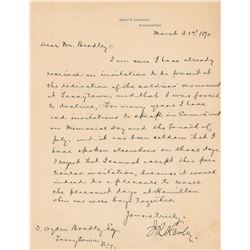 SENATE CHAMBER
WASHINGTON
March 31st 1890
Dear Mr. Bradley:-
I am sure I have already
received an invitation to be present at
the dedication of the soldiers' monument
at Tarrytown, and that I was forced
to decline. For many years I have
had invitations to speak in Connecticut
on Memorial Day and the Fourth of
July, and it has been seldom that I
have spoken elsewhere on those days.
I regret that I cannot accept this fra-
ternal invitation, because it would
indeed be a pleasure to recall
the pleasant days at Hamilton
when we were boys together.
Yours truly,
J R Hawley
D. Ogden Bradley Esq
Tarrytown
N.Y.